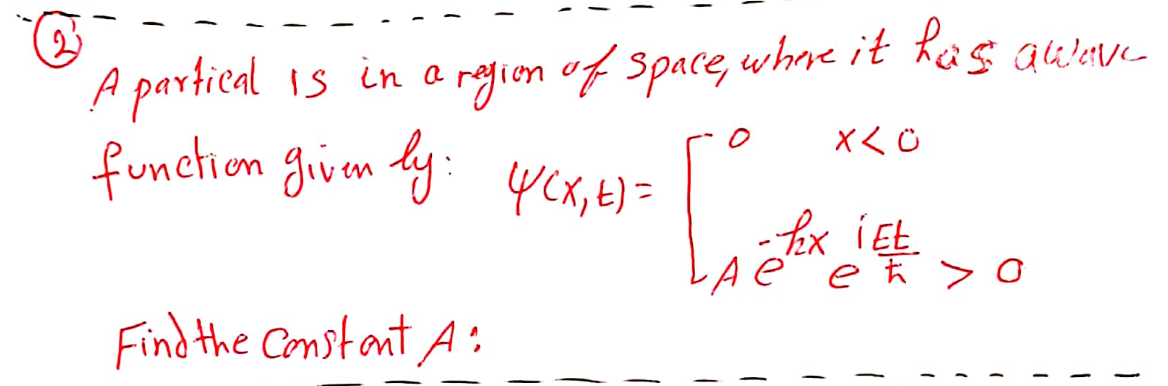 ② A partical is in a region of space, where it has a wave
function given by: Ψ(x,t) = [ 0 x<0
A e^{-kx} e^{i\frac{Et}{ħ}} > 0
Find the Constant A: